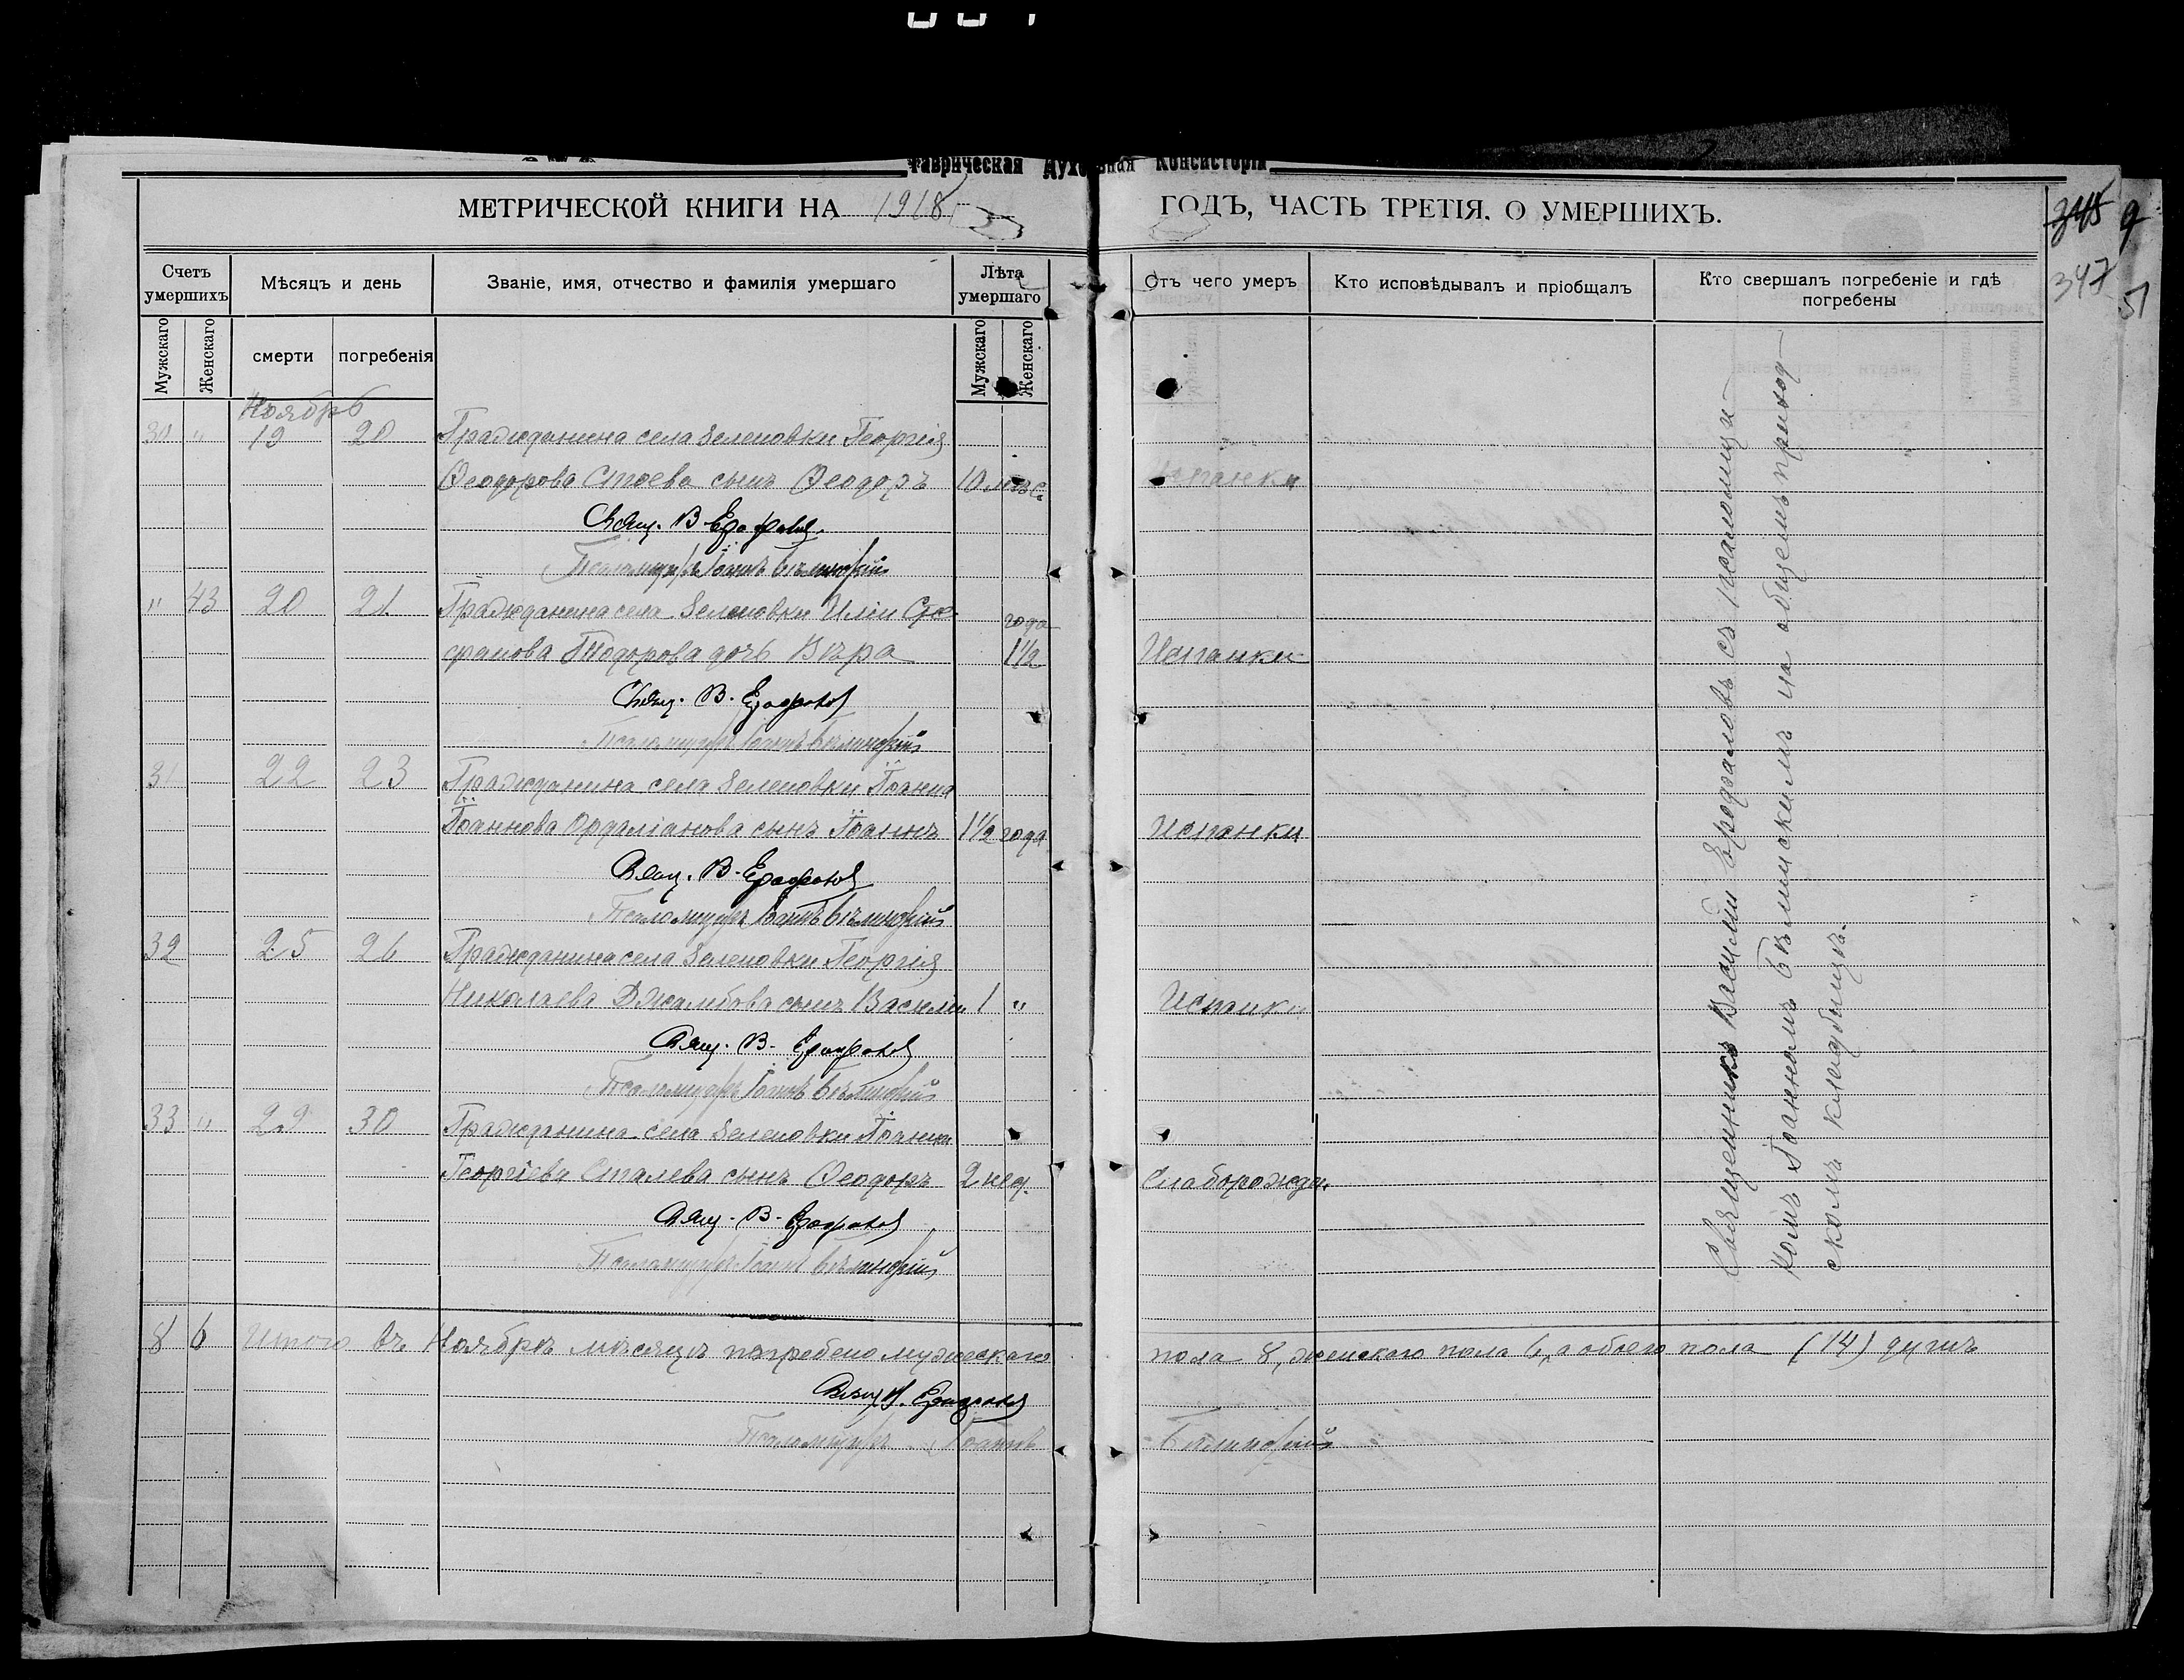 Таврическая Духовная Консисторія
МЕТРИЧЕСКОЙ КНИГИ НА 1918
ГОДЪ, ЧАСТЬ ТРЕТІЯ. О УМЕРШИХЪ.
345 9
347 51
Счетъ умершихъ
Мѣсяцъ и день
Званіе, имя, отчество и фамилія умершаго
Лѣта умершаго
Отъ чего умеръ
Кто исповѣдывалъ и пріобщалъ
Кто свершалъ погребеніе и гдѣ погребены
Мужскаго
Женскаго
смерти
погребенія
Мужскаго
Женскаго
Ноябрь
30 " 19 20 Гражданина села Зеленовки Георгія
Ѳеодорова Стоева сынъ Ѳеодоръ 10 мѣс. Испанки
Свящ. В.
Псаломщикъ Іоаннъ
" 43 20 21 Гражданина села Зеленовки Иліи Сте-
фанова Тодорова дочь Вѣра года 1½ Испанки
Свящ. В.
Псаломщикъ Іоаннъ
31 22 23 Гражданина села Зеленовки Іоанна
Іоаннова сынъ Іоаннъ 1½ года Испанки
Свящ. В.
Псаломщикъ Іоаннъ
32 25 26 Гражданина села Зеленовки Георгія
Николаева Джамбова сынъ Василій 1 " Испанки
Свящ. В.
Псаломщикъ Іоаннъ
33 " 29 30 Гражданина села Зеленовки Іоанна
Георгіева Сталева сынъ Ѳеодоръ 2 нед. Слаборожден.
Свящ. В.
Псаломщикъ Іоаннъ
Священникъ Василій съ псаломщи-
комъ Іоанномъ на общемъ приход-
скомъ кладбищѣ.
8 6 Итого въ Ноябрѣ мѣсяцѣ погребено мужескаго
пола 8, женскаго пола 6, а обоего пола (14) душъ
Свящ. В.
Псаломщикъ Іоаннъ